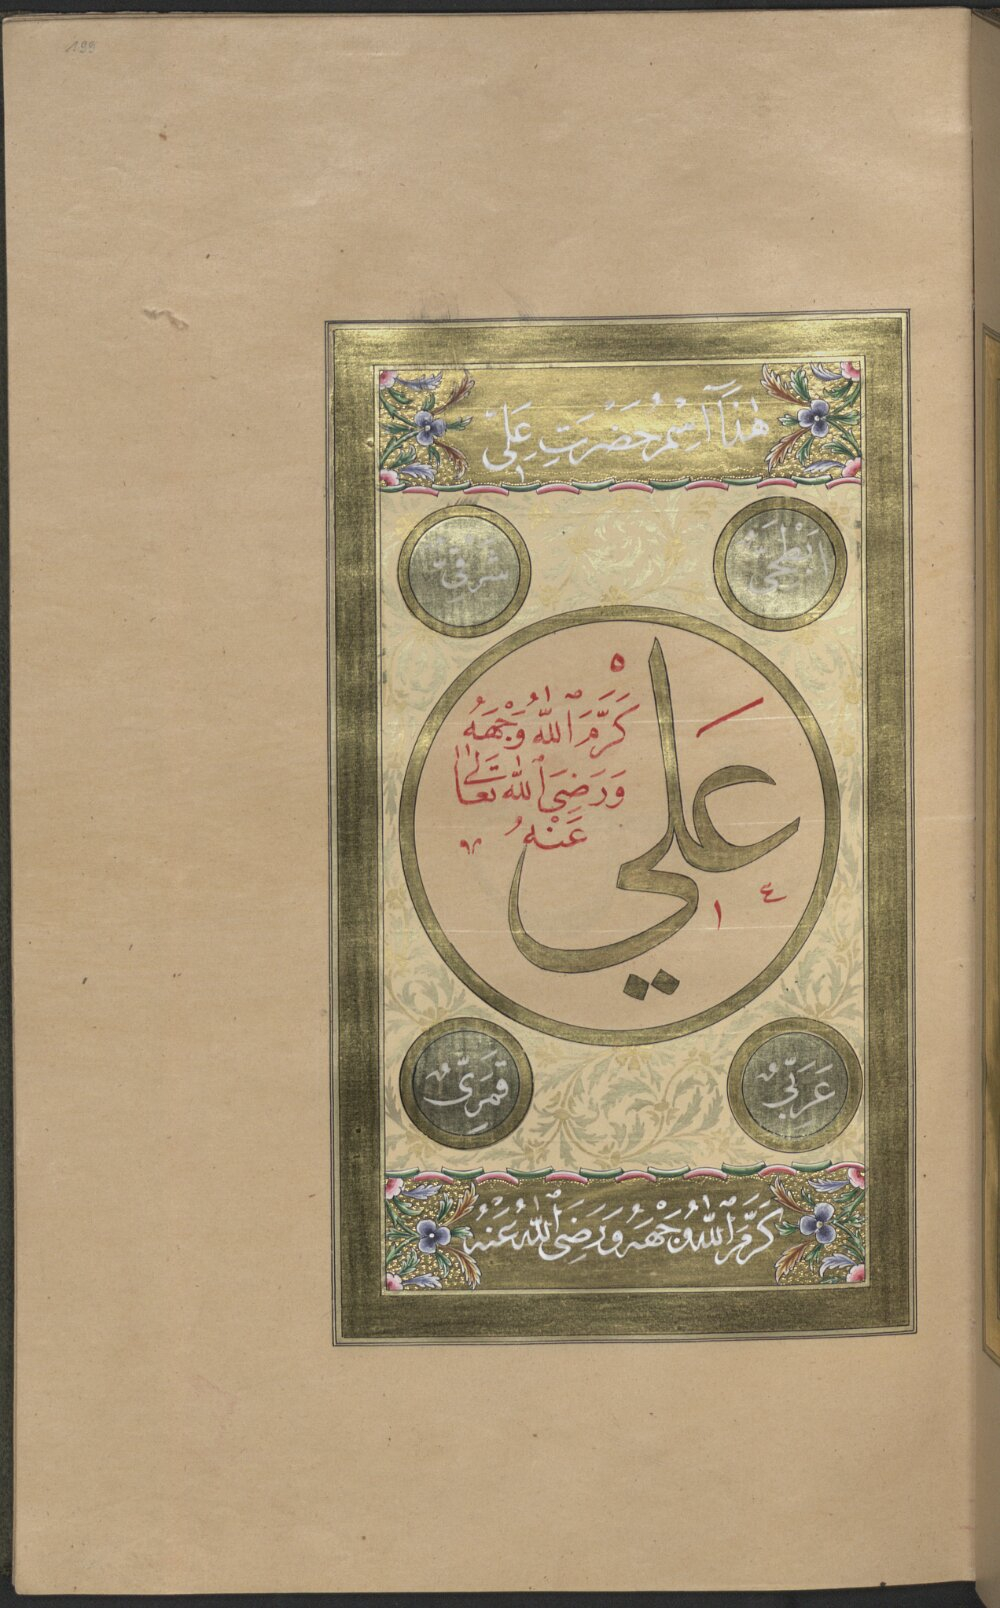 199
هٰذَا اَسِمْ حَضْرَتِ عَلِيّ
اَبْطَحِيٌّ
شَرَقِيٌّ
عَلي
كَرَّمَ اللّٰهُ وَجْهَهُ
وَرَضِيَ اللّٰهُ تَعَالٰى
عَنْهُ
عَرَبِيٌّ
قَمَرِيٌّ
كَرَّمَ اللّٰهُ وَجْهَهُ وَرَضِيَ اللّٰهُ عَنْهُ